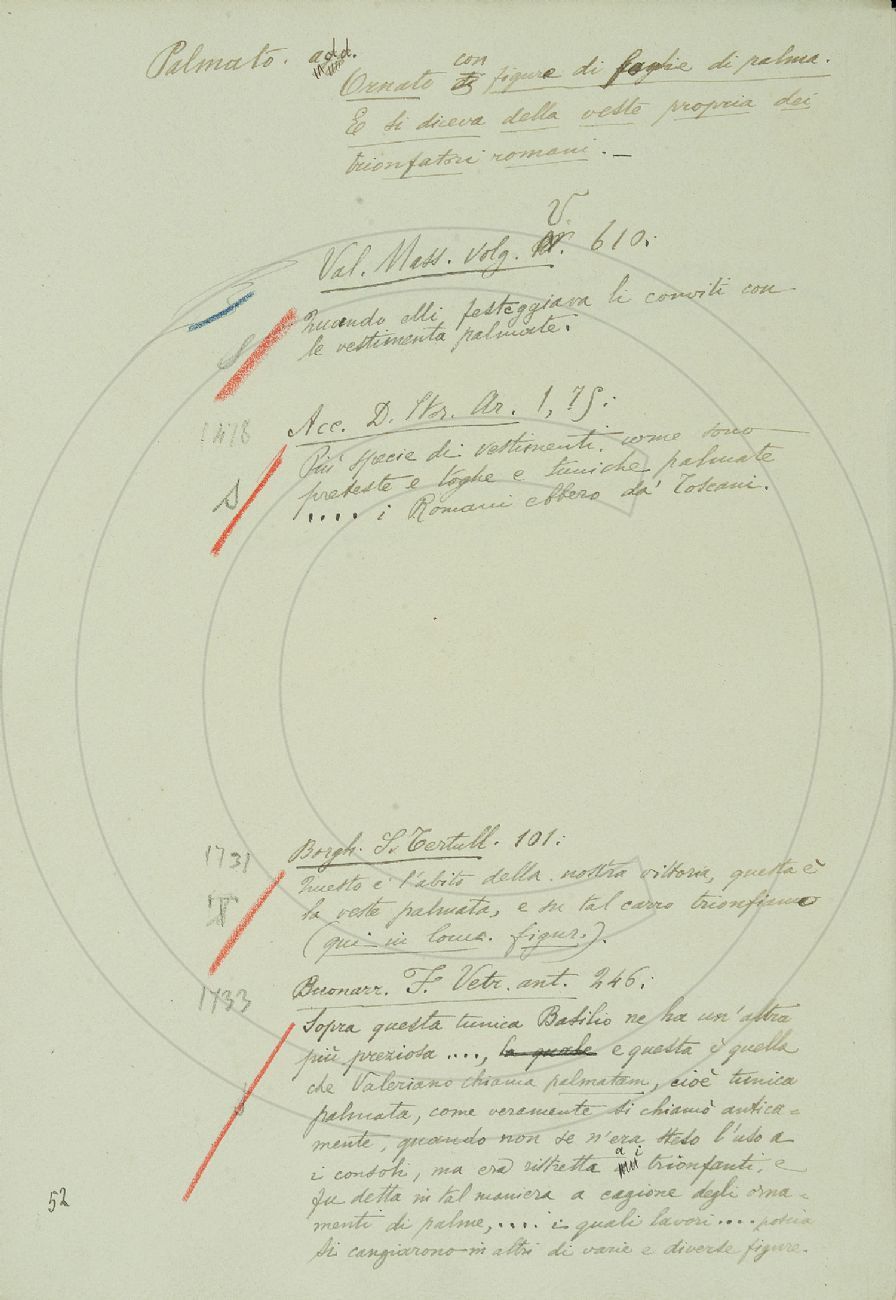 Palmato. add.
Ornato con figure di foglie di palma.
E si diceva della veste propria dei
trionfatori romani. —
V.
Val. Mass. volg. 610:
Quando elli festeggiava li conviti con
le vestimenta palmate.
S
1478
Acc. D. Stor. Ar. 1, 75:
Più specie di vestimenti. come sono
preteste e toghe e tuniche palmate
.... i Romani ebbero da' Toscani.
S
1731
Borgh. S. Tertull. 101:
Questo è l'abito della nostra vittoria, questa è
la veste palmata, e su tal carro trionfiamo
(qui in locuz. figur.).
1733
Buonarr. F. Vetr. ant. 246:
Sopra questa tunica Basilio ne ha un'altra
più preziosa ...., la quale e questa è quella
che Valeriano chiama palmatam, cioè tunica
palmata, come veramente si chiamò antica=
mente, quando non se n'era steso l'uso a
i consoli, ma era ristretta a i trionfanti, e
fu detta in tal maniera a cagione degli orna=
menti di palme, .... i quali lavori .... poscia
si cangiarono in altri di varie e diverse figure.
52